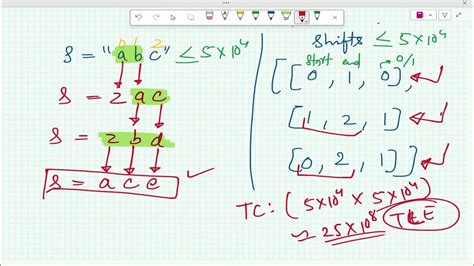 0 1 2
s = "abc" ≤ 5×10⁴
s = z a c
s = z b d
s = a c e
Shifts ≤ 5×10⁴
start end → 0/1
[[0, 1, 0],
[1, 2, 1]
[0, 2, 1]]
TC: (5×10⁴ × 5×10⁴)
≈ 25×10⁸ TLE